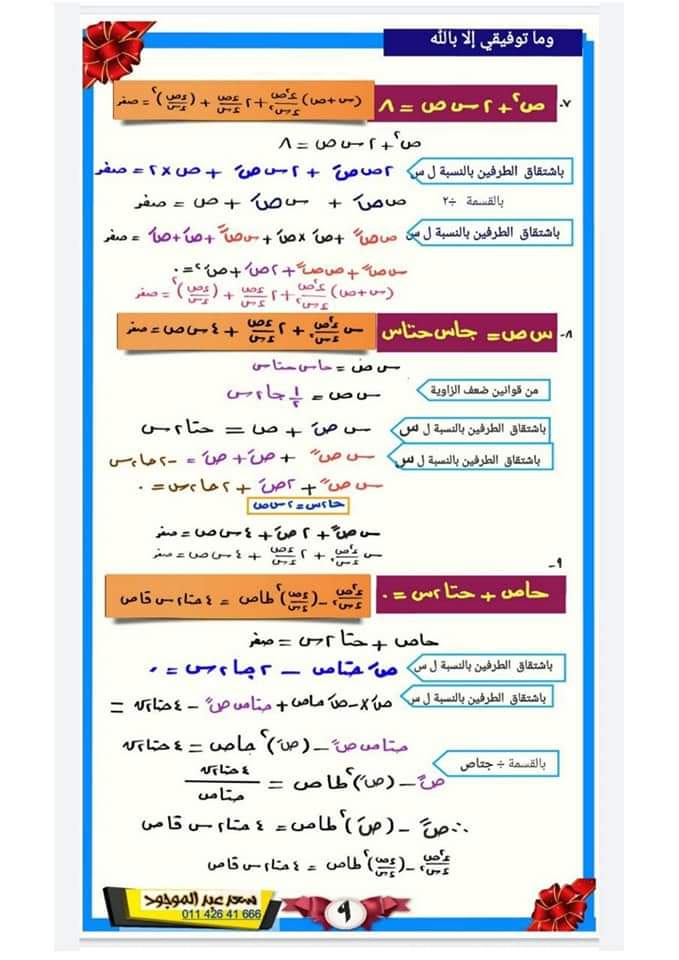 وما توفيقي إلا بالله
٧- ص² + ٢ س ص = ٨ (س + ص) ء²ص/ءس² + ٢ ءص/ءس + (ءص/ءس)² = صفر
ص² + ٢ س ص = ٨
باشتقاق الطرفين بالنسبة ل س ٢ ص صَ + ٢ س صَ + ص × ٢ = صفر
بالقسمة ÷ ٢ ص صَ + س صَ + ص = صفر
باشتقاق الطرفين بالنسبة ل س ص صً + صَ × صَ + س صً + صَ + صَ = صفر
س صً + ص صً + ٢ صَ + صَ² = ٠
(س + ص) ء²ص/ءس² + ٢ ءص/ءس + (ءص/ءس)² = صفر
٨- س ص = جاس حتاس س ء²ص/ءس² + ٢ ءص/ءس + ٤ س ص = صفر
س ص = حاس حتاس
من قوانين ضعف الزاوية س ص = ١/٢ جا ٢ س
باشتقاق الطرفين بالنسبة ل س س صَ + ص = حتا ٢ س
باشتقاق الطرفين بالنسبة ل س س صً + صَ + صَ = -٢ حا ٢ س
س صً + ٢ صَ + ٢ حا ٢ س = ٠
حا ٢ س = ٢ س ص
س صً + ٢ صَ + ٤ س ص = صفر
س ء²ص/ءس² + ٢ ءص/ءس + ٤ س ص = صفر
٩-
حاص + حتا ٢ س = ٠ ء²ص/ءس² - (ءص/ءس)² طاص = ٤ حتا ٢ س قاص
حاص + حتا ٢ س = صفر
باشتقاق الطرفين بالنسبة ل س صَ حتاص - ٢ جا ٢ س = ٠
باشتقاق الطرفين بالنسبة ل س صَ × - صَ حاص + حتاص صً - ٤ حتا ٢ س =
حتاص صً - (صَ)² جاص = ٤ حتا ٢ س
بالقسمة ÷ جتاص صً - (صَ)² طاص = ٤ حتا ٢ س / حتاص
∴ صً - (صَ)² طاص = ٤ حتا ٢ س قاص
ء²ص/ءس² - (ءص/ءس)² طاص = ٤ حتا ٢ س قاص
سعد عبد الموجود
011 426 41 666
٩